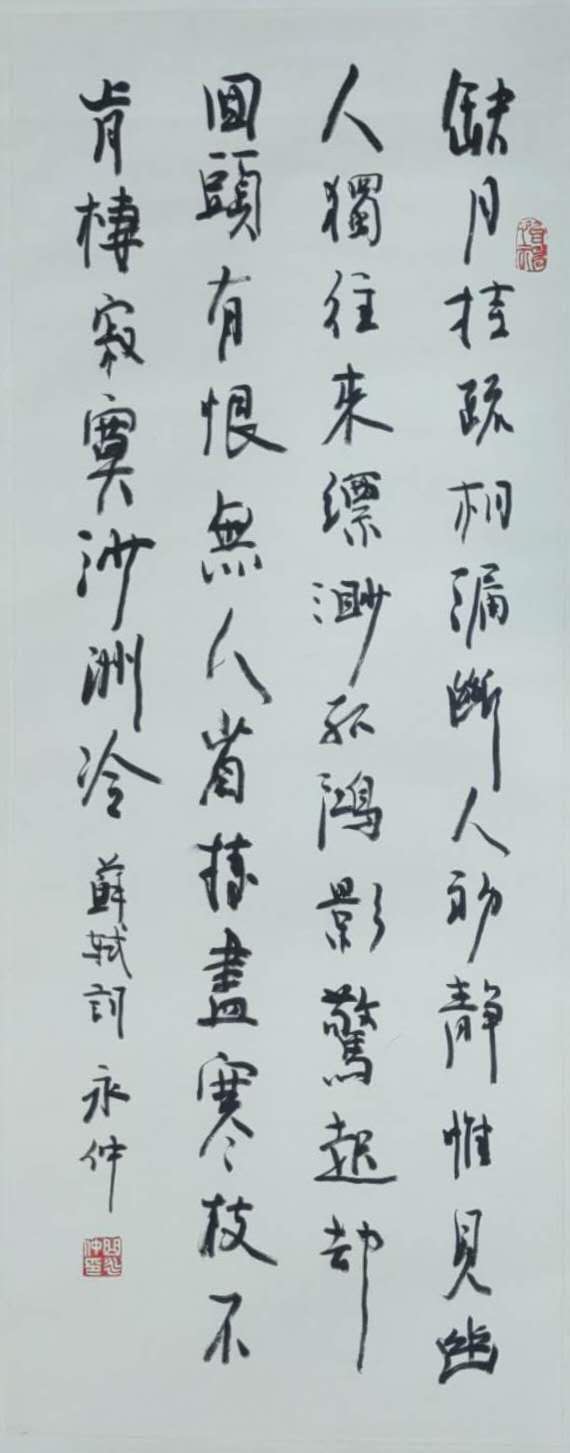 缺月挂疏桐漏断人初靜惟見幽
人獨往来縹渺孤鴻影驚起却
回頭有恨無人省揀盡寒枝不
肯棲寂寞沙洲冷 蘇軾詞 永仲